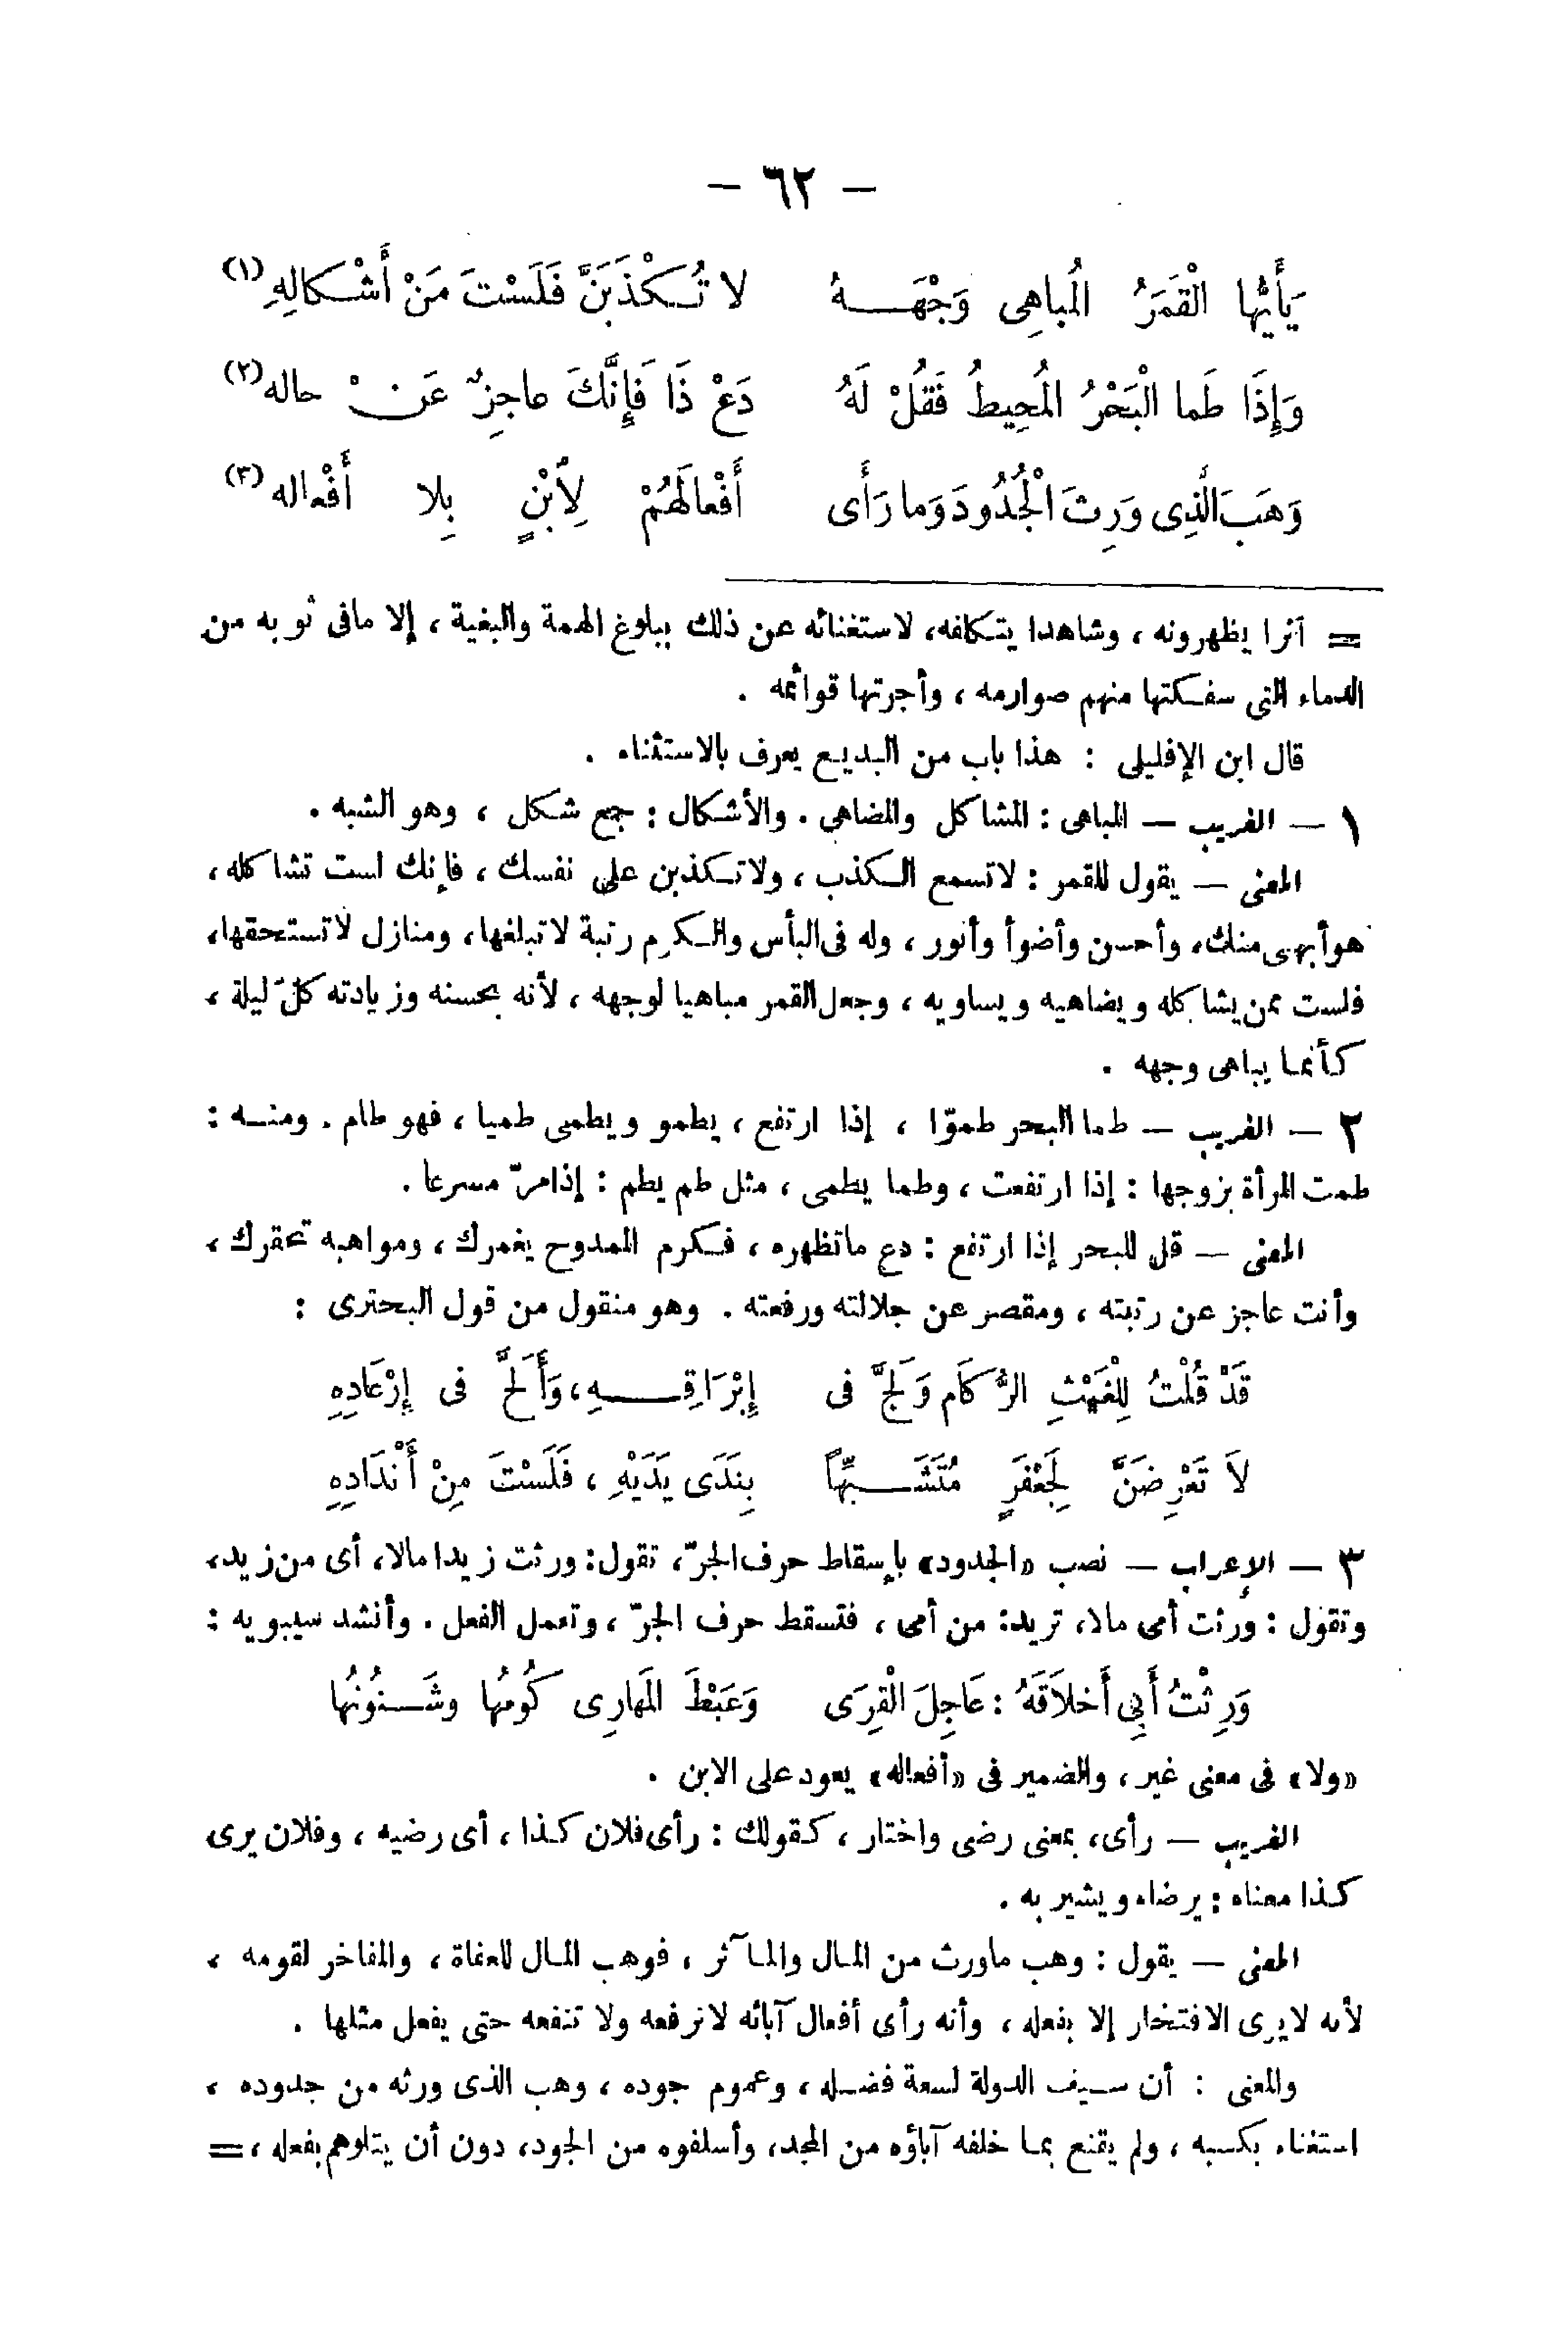 — ٦٢ —
يَأَيُّها الْقَمَرُ الْمُباهِى وَجْهَهُ لا تُكْذَبَنَّ فَلَسْتَ مَنْ أَشْكالِهِ (١)
وَإِذَا طَما الْبَحْرُ الْمُحِيطُ فَقُلْ لَهُ دَعْ ذَا فَإِنَّكَ عاجِزٌ عَنْ حاله (٢)
وَهَبَ الَّذِى وَرِثَ الْجُدُودَ وَما رَأَى أَفْعالَهُمْ لِاُبْنٍ بِلا أَفْعاله (٣)
= أثرا يظهرونه ، وشاهدا يتكلفه، لاستغنائه عن ذلك ببلوغ الهمة والبغية ، إلا مافى ثوبه من
الدماء التى سفكتها منهم صوارمه ، وأجرتها قوائمه .
قال ابن الإفليلى : هذا باب من البديع يعرف بالاستثناء .
١ — الغريب — المباهى : المشاكل والمضاهى . والأشكال : جمع شكل ، وهو الشبه .
المعنى — يقول للقمر : لاتسمع الكذب ، ولاتكذبن على نفسك ، فإنك لست تشاكله ،
هو أبهى منك، وأحسن وأضوأ وأنور ، وله فى البأس والكرم رتبة لاتبلغها، ومنازل لاتستحقها،
فلست ممن يشاكله ويضاهيه ويساويه ، وجعل القمر مباهيا لوجهه ، لأنه بحسنه وزيادته كلّ ليلة ،
كأنما يباهى وجهه .
٢ — الغريب — طما البحر طموّا ، إذا ارتفع ، يطمو ويطمى طميا ، فهو طام . ومنه :
طمت المرأة بزوجها : إذا ارتفعت ، وطما يطمى ، مثل طم يطم : إذامرّ مسرعا .
المعنى — قل للبحر إذا ارتفع : دع ماتظهره ، فكرم الممدوح يغمرك ، ومواهبه تحقرك ،
وأنت عاجز عن رتبته ، ومقصر عن جلالته ورفعته . وهو منقول من قول البحترى :
قَدْ قُلْتُ لِلْغَيْثِ الرُّكَامِ وَلَجَّ فى إِبْرَاقِهِ، وَأَلَحَّ فى إِرْعَادِهِ
لاَ تَعْرِضَنَّ لِجَعْفَرٍ مُتَشَبِّهًا بِنَدَى يَدَيْهِ ، فَلَسْتَ مِنْ أَنْدَادِهِ
٣ — الإعراب — نصب «الجدود» بإسقاط حرف الجرّ، تقول: ورثت زيدا مالا، أى من زيد،
وتقول : ورثت أمى مالا، تريد: من أمى ، فتسقط حرف الجرّ ، وتعمل الفعل . وأنشد سيبويه :
وَرِثْتُ أَبِى أَخلاَقَهُ : عَاجِلَ الْقِرَى وَعَبْطَ الْمَهارِى كُومُها وشَنُونُها
«ولا» فى معنى غير ، والضمير فى «أفعاله» يعود على الابن .
الغريب — رأى، بمعنى رضى واختار ، كقولك : رأى فلان كذا ، أى رضيه ، وفلان يرى
كذا معناه : يرضاه ويشير به .
المعنى — يقول : وهب ماورث من المال والمآثر ، فوهب المال للعفاة ، والمفاخر لقومه ،
لأنه لايرى الافتخار إلا بفعله ، وأنه رأى أفعال آبائه لاترفعه ولا تنفعه حتى يفعل مثلها .
والمعنى : أن سيف الدولة لسعة فضله ، وعموم جوده ، وهب الذى ورثه من جدوده ،
استغناء بكسبه ، ولم يقنع بما خلفه آباؤه من المجد، وأسلفوه من الجود، دون أن يتلوهم بفعله ، =